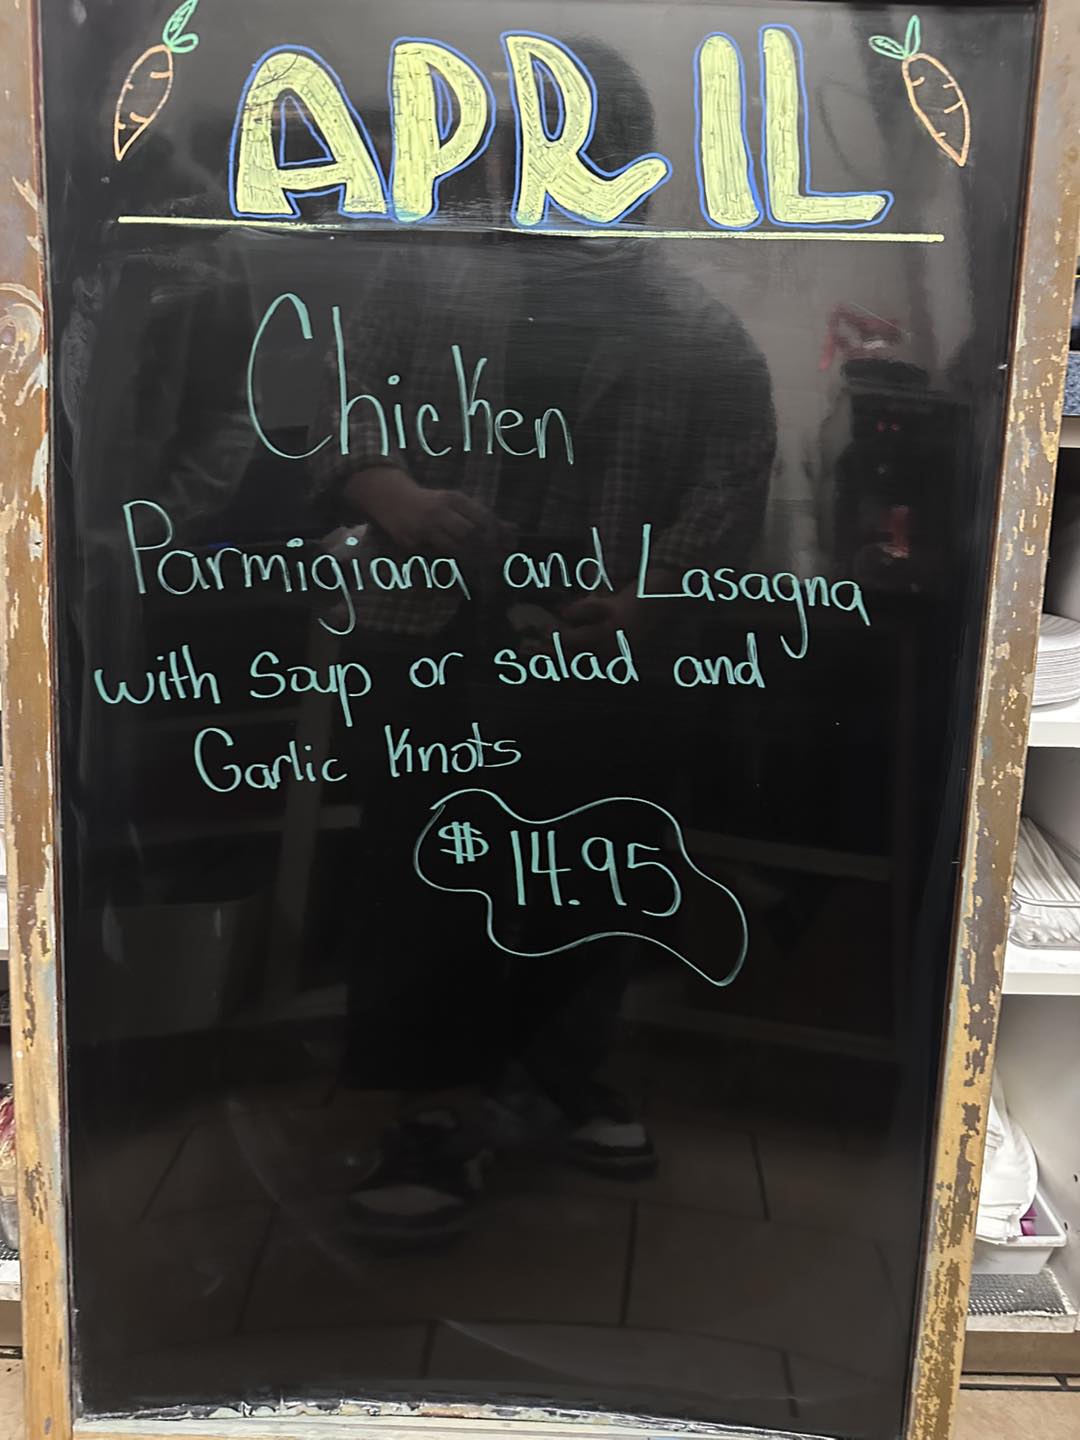 APRIL
Chicken
Parmigiana and Lasagna
with Soup or salad and
Garlic Knots
$14.95